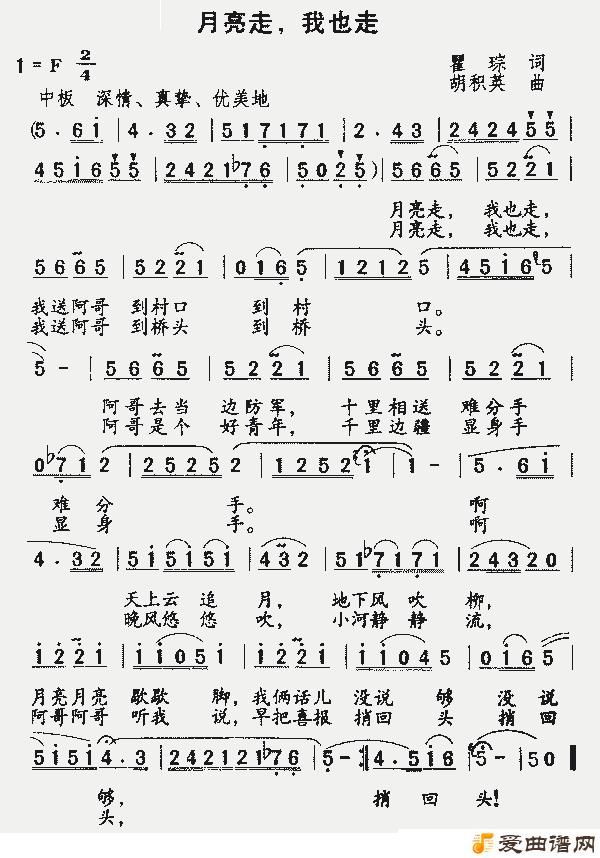 月亮走，我也走
1 = F 2/4
瞿琮 词
胡积英 曲
中板 深情、真挚、优美地
(5 . 6i | 4 . 32 | 517171 | 2 . 43 | 242455 |
45i655 | 2421b76 | 5025) | 5665 | 5221 |
月亮走， 我也走，
月亮走， 我也走，
5665 | 5221 | 0165 | 12125 | 45i65 |
我送阿哥 到村口 到 村 口。
我送阿哥 到桥头 到 桥 头。
5 - | 5665 | 5221 | 5665 | 5221 |
阿哥去当 边防军， 十里相送 难分手
阿哥是个 好青年， 千里边疆 显身手
0b712 | 25252 | 1252i | i - | 5 . 6i |
难 分 手。 啊
显 身 手。 啊
4 . 32 | 5i5i5i | 432 | 51b7171 | 24320 |
天上云 追 月， 地下风 吹 柳，
晚风悠 悠 吹， 小河静 静 流，
i22i | ii05i | i22i | ii045 | 0i65 |
月亮月亮 歇歇 脚，我俩话儿 没说 够 没 说
阿哥阿哥 听我 说，早把喜报 捎回 头 捎 回
5i5i4 . 3 | 242121b76 | 5 - :| 4 . 5i6 | 5 - | 50 ||
够， 捎 回 头！
头，
爱曲谱网